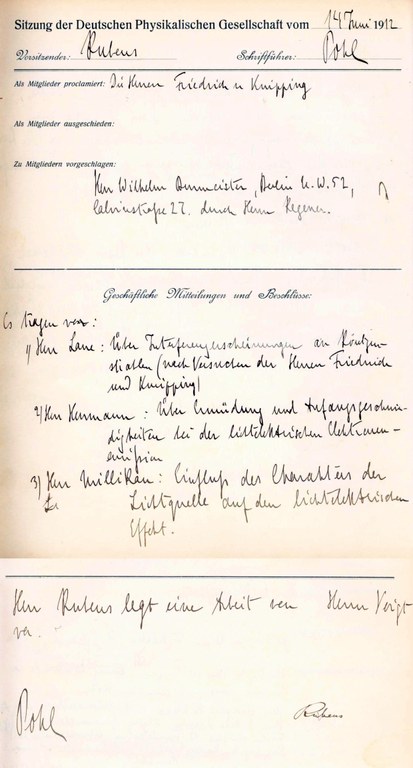 Sitzung der Deutschen Physikalischen Gesellschaft vom 14 Juni 1912
Vorsitzender: Rubens Schriftführer: Pohl
Als Mitglieder proclamiert: Die Herren Friedrich u Knipping
Als Mitglieder ausgeschieden:
Zu Mitgliedern vorgeschlagen:
Herr Wilhelm Burmeister, Berlin N.W. 52,
Calvinstraße 27. durch Herrn Regener.
Geschäftliche Mitteilungen und Beschlüsse:
Es tragen vor:
1) Herr Laue: Über Interferenzerscheinungen an Röntgen-
strahlen (nach Versuchen der Herren Friedrich
und Knipping)
2) Herr Hermann: Über Ermüdung und Anfangsgeschwin-
digkeiten bei der lichtelektrischen Elektronen-
emission
3) Herr Millikan: Einfluß des Charakters der
Lichtquelle auf den lichtelektrischen
Effekt.
Herr Rubens legt eine Arbeit von Herrn Voigt
vor.
Pohl Rubens